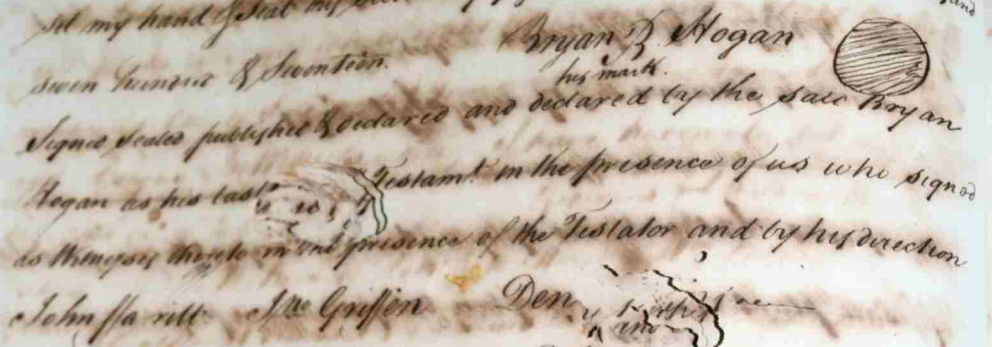 set my hand & seal
Bryan B Hogan
seven hundred & Seventeen.
his mark.
Signed sealed published & declared and declared by the said Bryan
Hogan as his last Testamt. in the presence of us who signed
as Witnesses thereto in the presence of the Testator and by his direction
John Jno Griffen Den